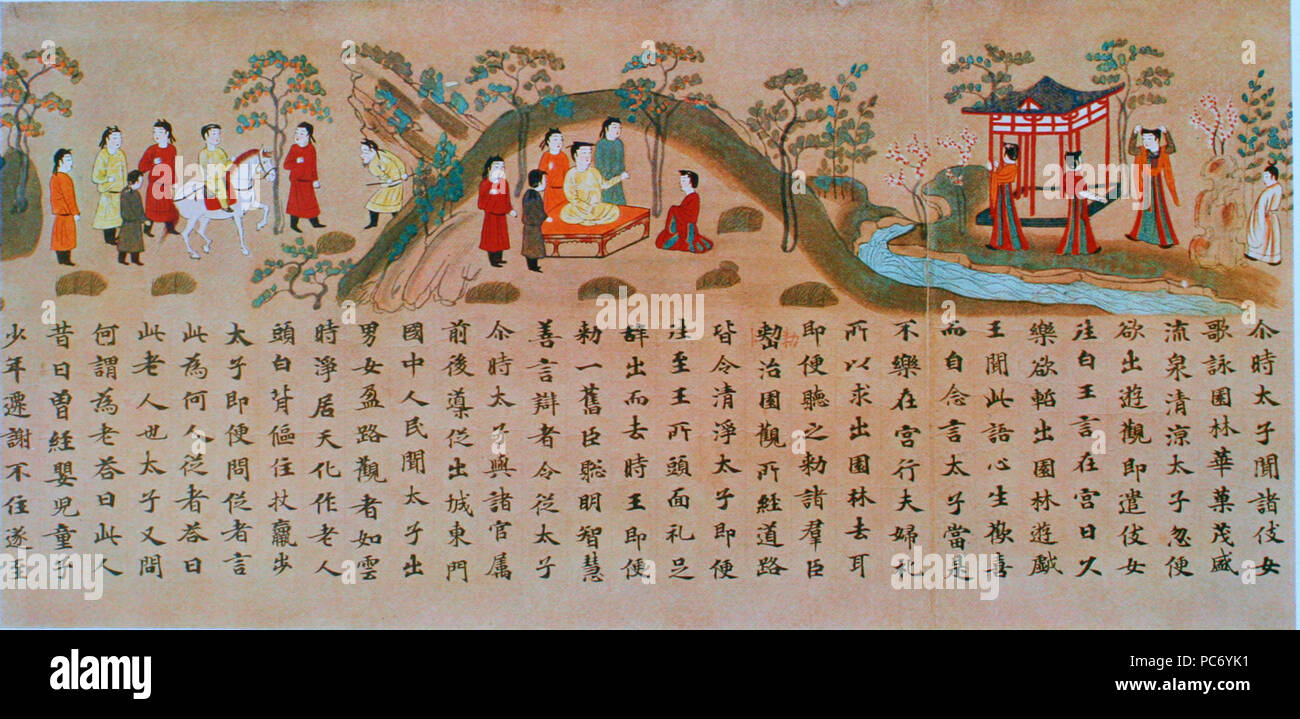 尒時太子聞諸伎女
歌詠園林華菓茂盛
流泉清涼太子忽便
欲出遊觀即遣伎女
往白王言在宮日久
樂欲蹔出園林遊戲
王聞此語心生歡喜
而自念言太子當是
不樂在宮行夫婦礼
所以求出園林去耳
即便聽之勑諸羣臣
整治園觀所經道路
皆令清淨太子即便
往至王所頭面礼足
辝出而去時王即便
勑一舊臣聡明智慧
善言辯者令從太子
尒時太子與諸官属
前後導從出城東門
國中人民聞太子出
男女盈路觀者如雲
時淨居天化作老人
頭白背傴住杖羸步
太子即便問從者言
此為何人從者荅曰
此老人也太子又問
何謂為老荅曰此人
昔日曽經嬰兒童子
少年遷謝不住遂至
alamy
a
a
a
alamy
Image ID: PC6YK1
www.alamy.com